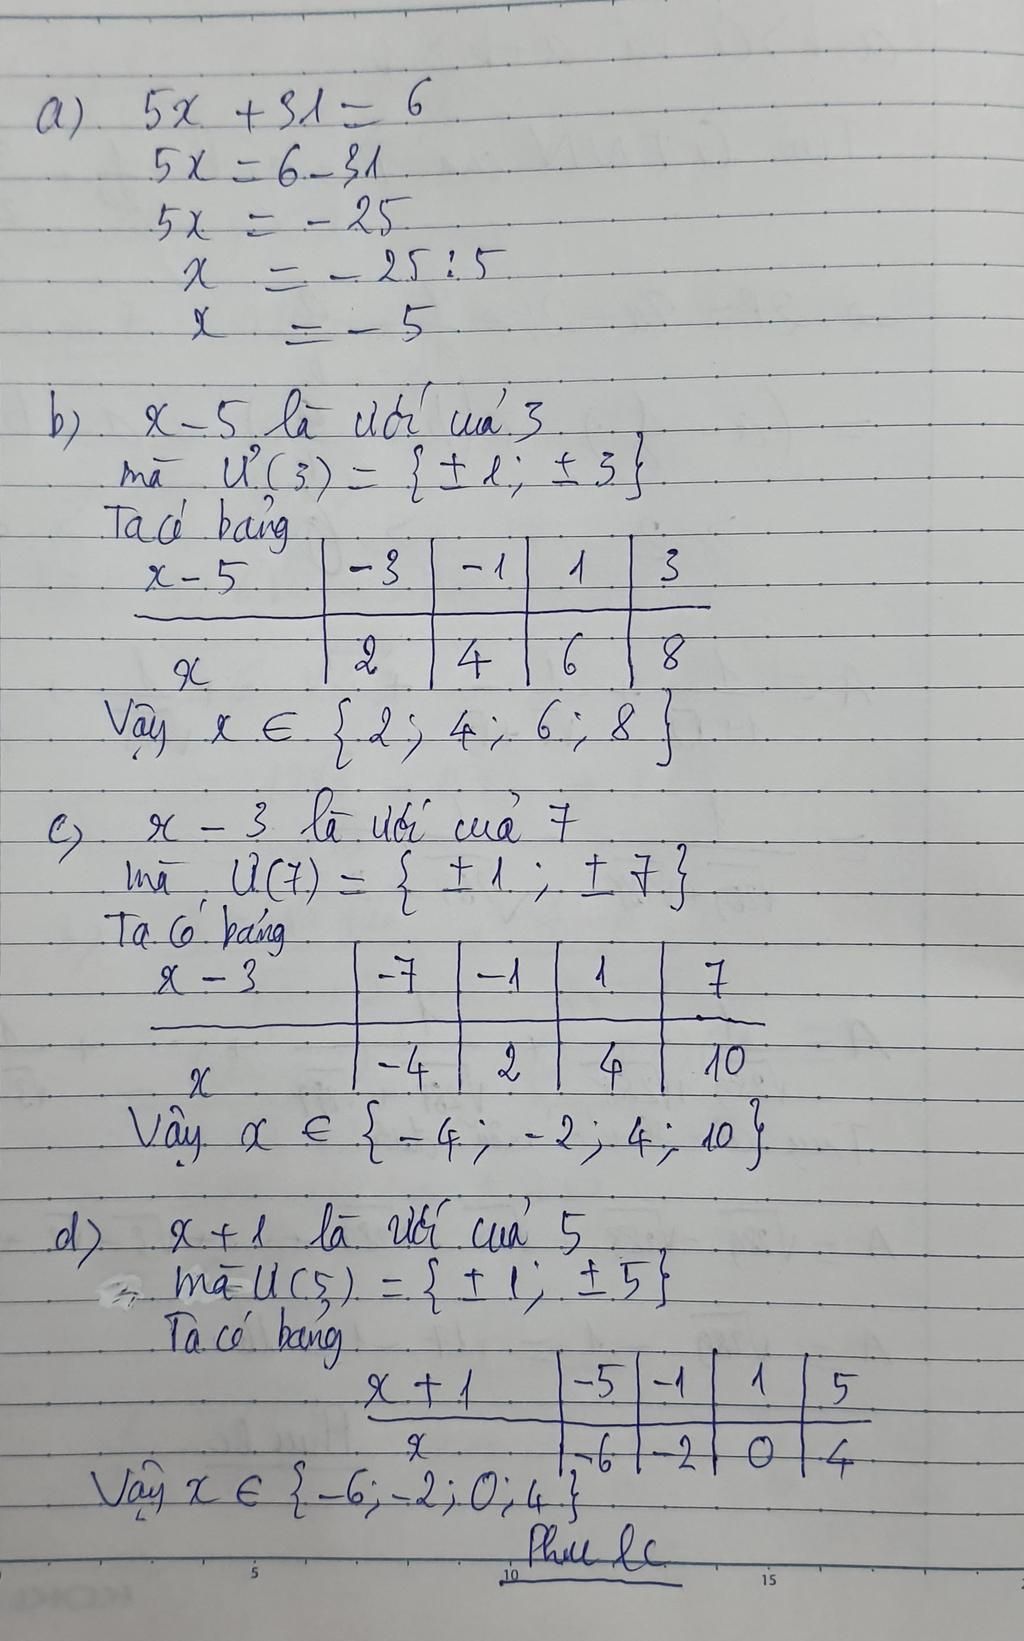 a) 5x + 31 = 6
5x = 6 - 31
5x = - 25
x = - 25 : 5
x = - 5
b) x - 5 là ước của 3
mà Ư(3) = { ± 1 ; ± 3 }
Ta có bảng
x - 5 -3 -1 1 3
x 2 4 6 8
Vậy x ∈ { 2 ; 4 ; 6 ; 8 }
c) x - 3 là ước của 7
mà Ư(7) = { ± 1 ; ± 7 }
Ta có bảng
x - 3 -7 -1 1 7
x -4 2 4 10
Vậy x ∈ { - 4 ; - 2 ; 4 ; 10 }
d) x + 1 là ước của 5
mà Ư(5) = { ± 1 ; ± 5 }
Ta có bảng
x + 1 -5 -1 1 5
x -6 -2 0 4
Vậy x ∈ { -6 ; -2 ; 0 ; 4 }
5 10 15